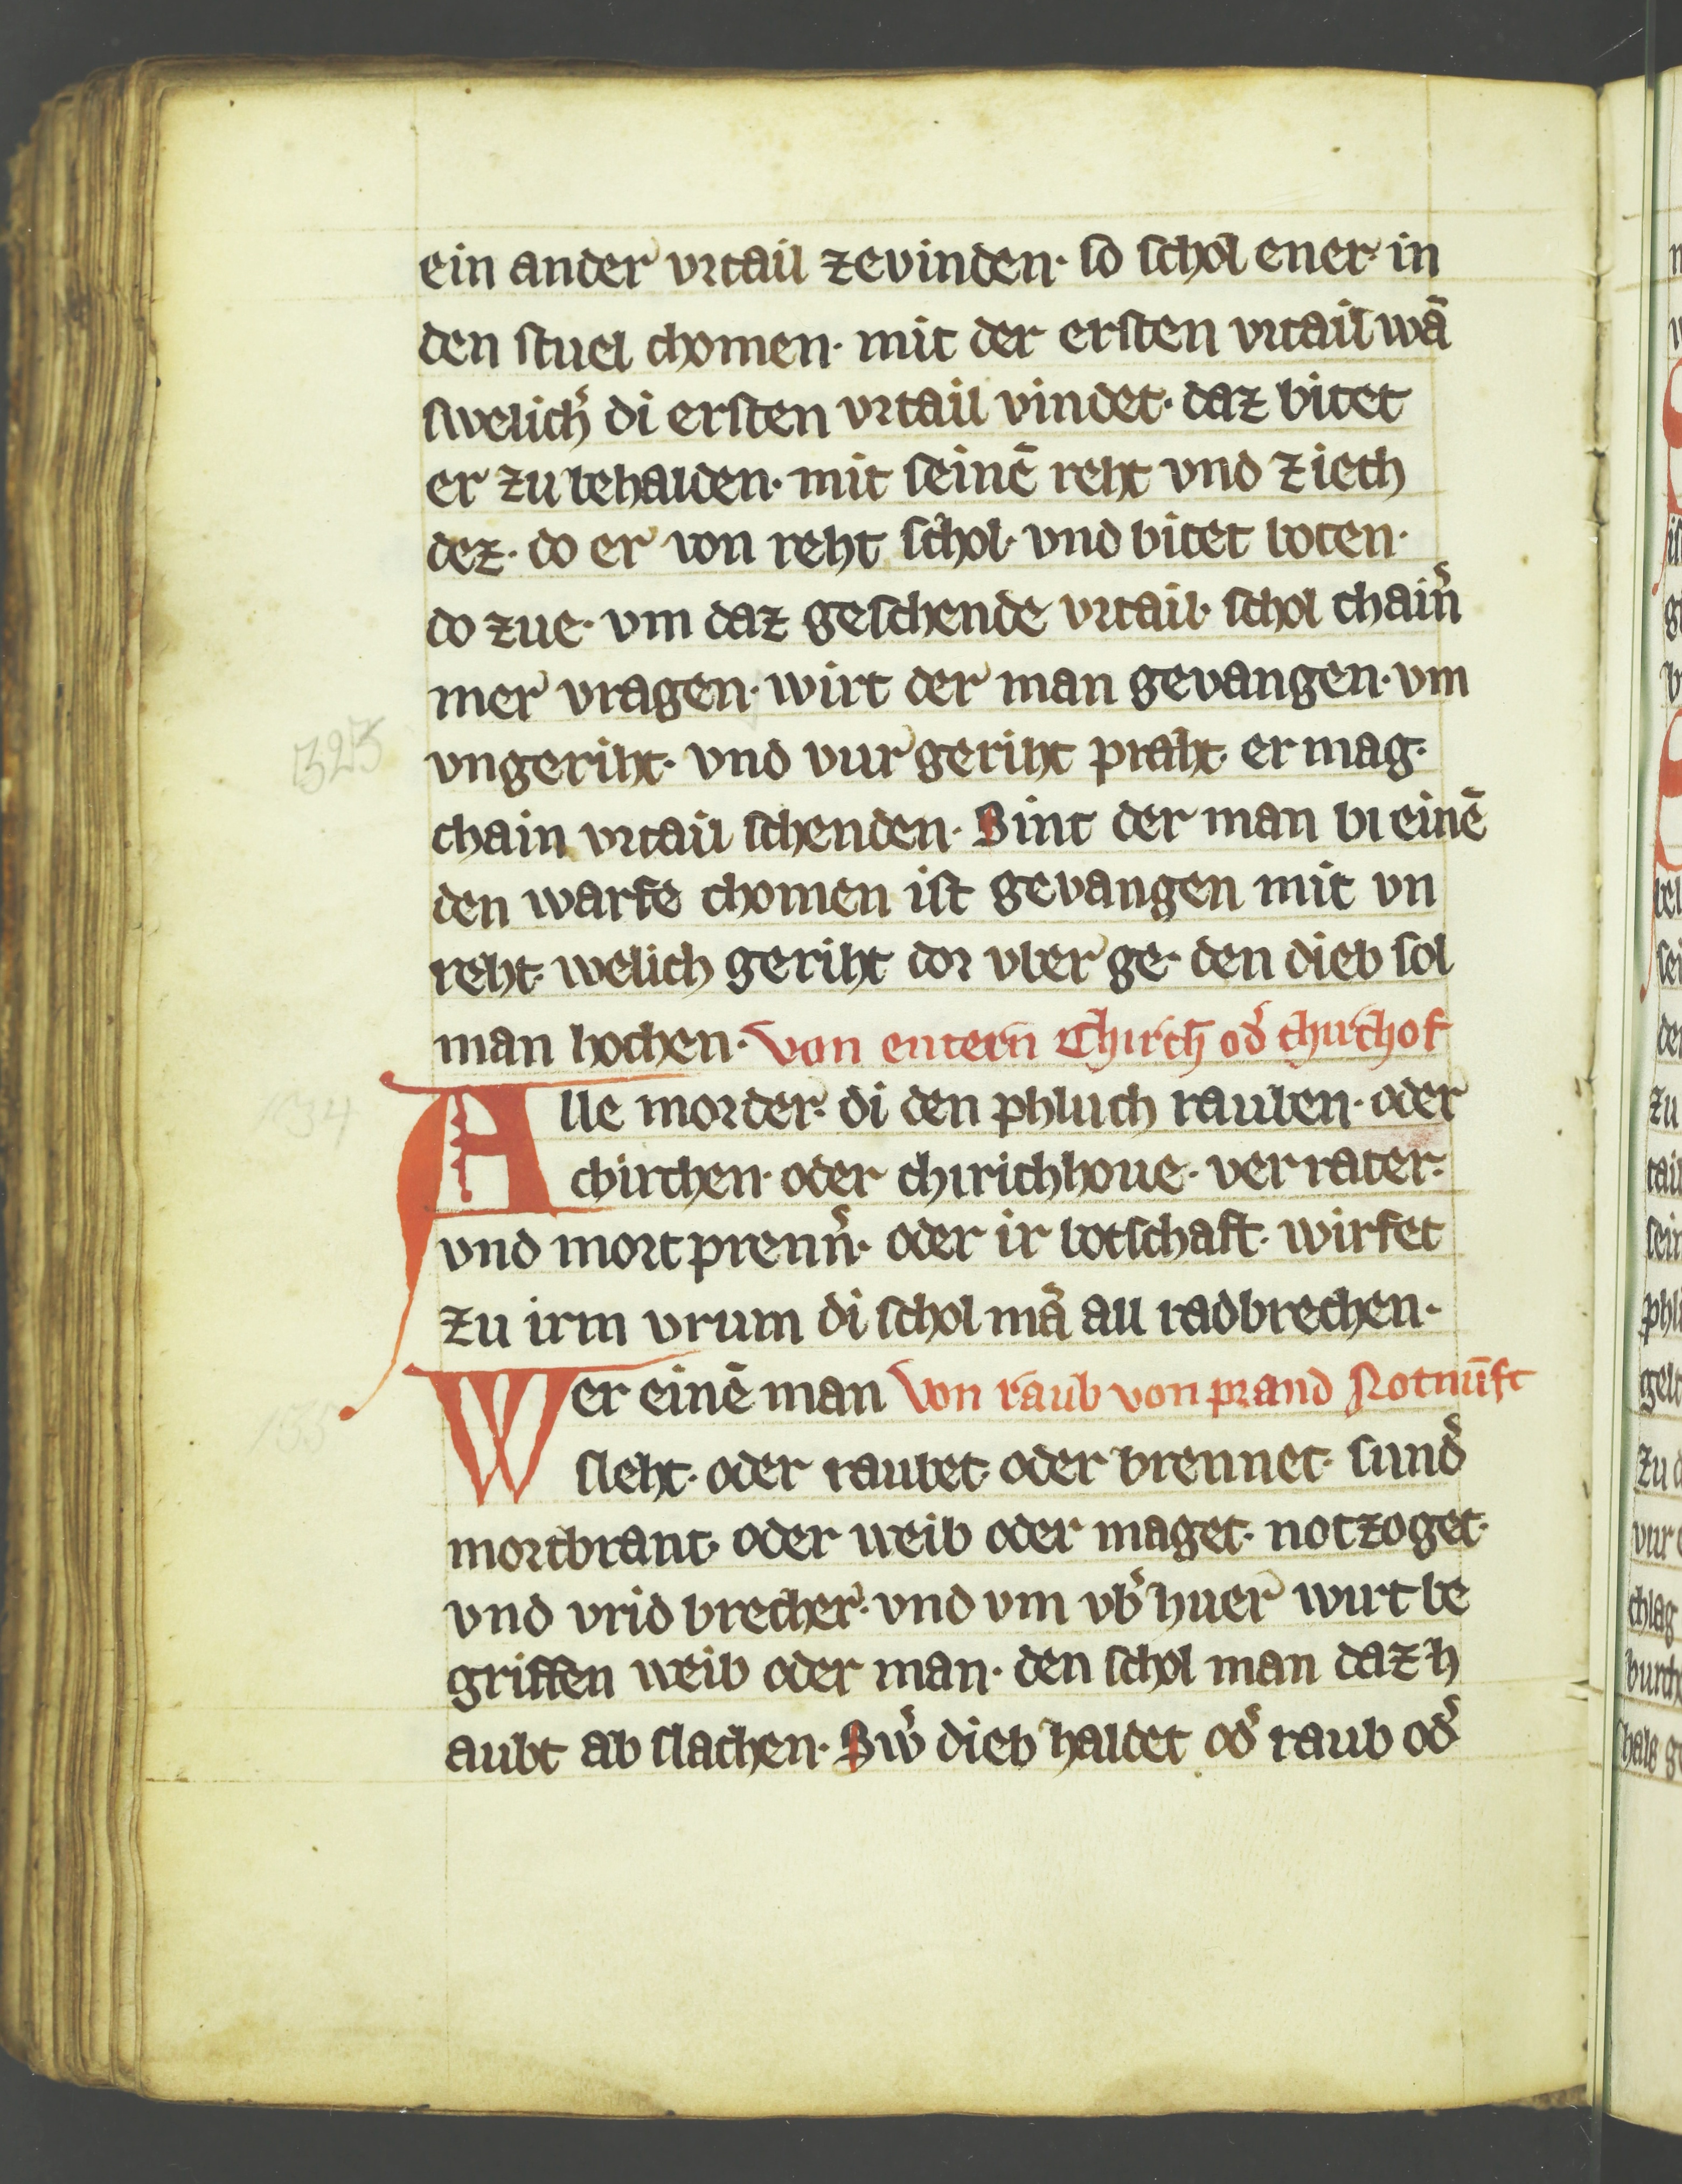 ein ander vrtail zevinden· so schol ener· in
den stuel chomen· mit der ersten vrtail wā
swelich͛ di ersten vrtail vindet· daz bitet
er zu behalden· mit seinē reht vnd ziech
dez· do er von reht schol· vnd bitet boten·
do zue· vm daz geschende vrtail· schol chain͛
mer vragen· wirt der man gevangen· vm
vngeriht· vnd vur geriht praht· er mag·
chain vrtail schenden· Sint der man bi einē
den warfe chomen ist gevangen mit vn
reht· welich geriht dor vber ge· den dieb sol
man hochen· Von entern Chirch od͛ chirchof
Alle morder· di den phluch rauben· oder
chirchen· oder chirichhoue· verrater·
vnd mort prenn͛· oder ir botschaft· wirfet
zu irm vrum di schol mā all radbrechen·
Wer einē man Von raub von prand Notnūft
sleht· oder raubet· oder brennet· sund͛
mortbrant· oder weib oder maget· notzoget·
vnd vrid brecher· vnd vm vb͛ huer wirt be
griffen weib oder man· den schol man daz h
aubt ab slachen· Sw͛ dieb haldet od͛ raub od͛